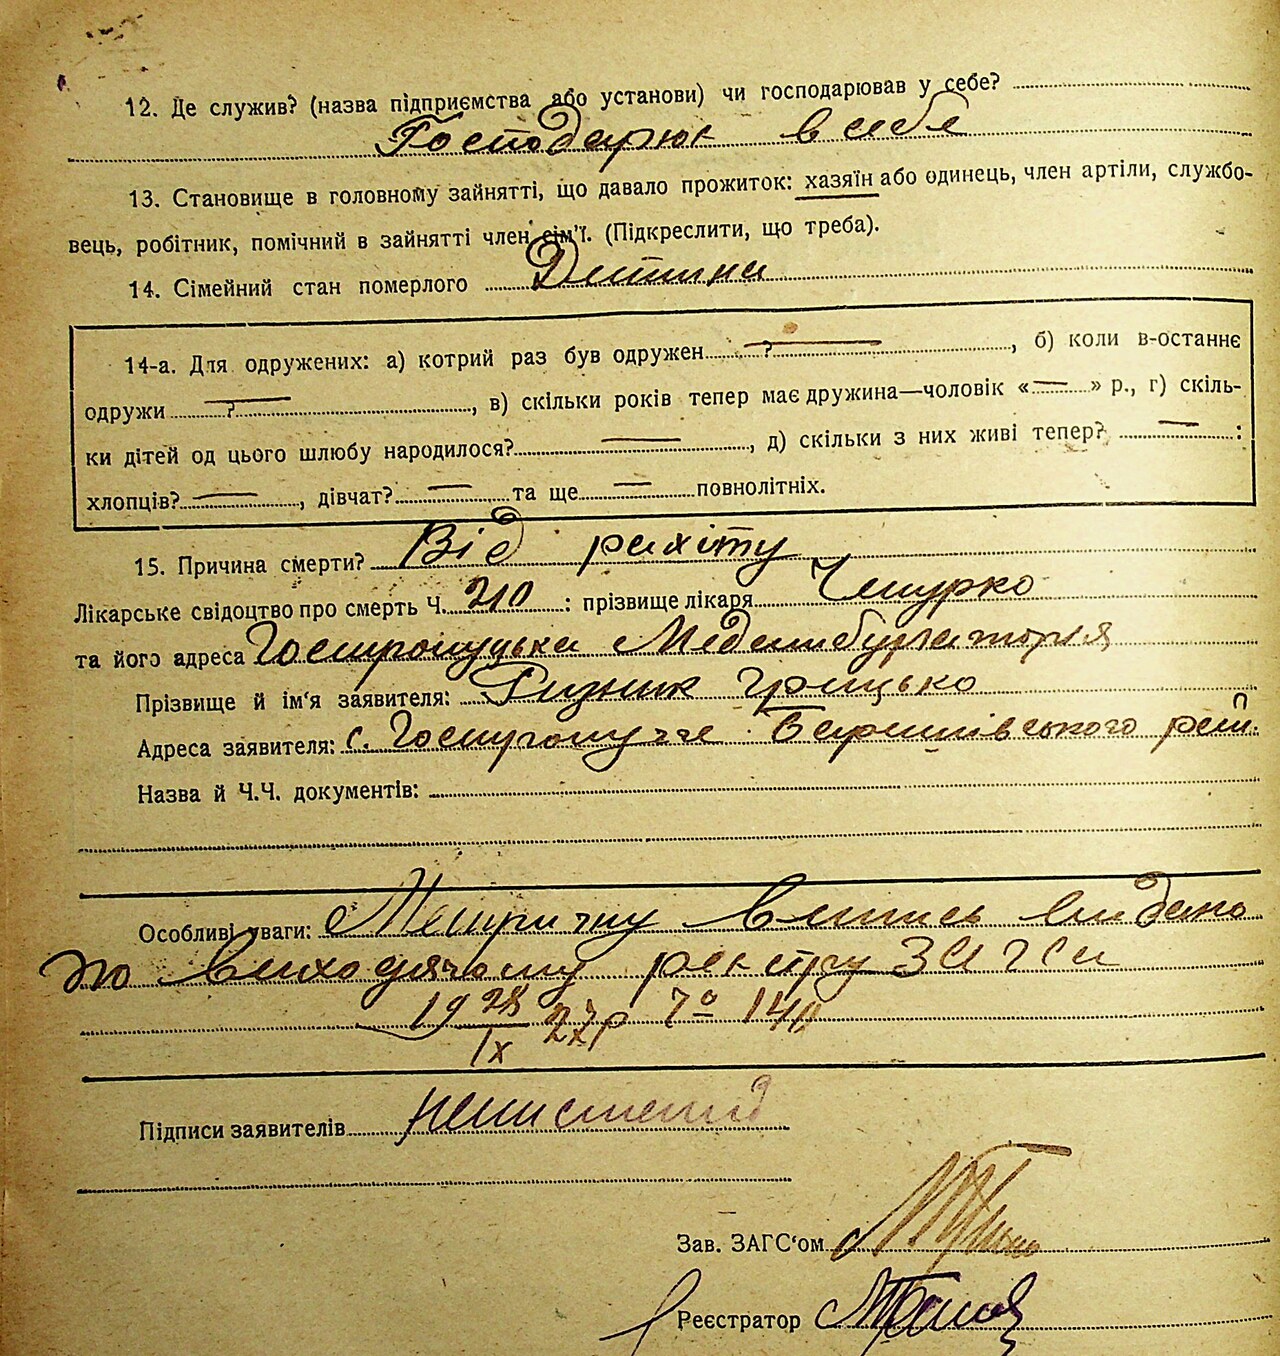 12. Де служив? (назва підприємства або установи) чи господарював у себе?
Господарює в себе
13. Становище в головному зайнятті, що давало прожиток: хазяїн або одинець, член артіли, службо-
вець, робітник, помічний в зайнятті член сім'ї. (Підкреслити, що треба).
14. Сімейний стан померлого Дитина
14-а. Для одружених: а) котрий раз був одружен ? —, б) коли в-останнє
одружи ? —, в) скільки років тепер має дружина—чоловік «—» р., г) скіль-
ки дітей од цього шлюбу народилося? —, д) скільки з них живі тепер? — :
хлопців? —, дівчат? — та ще — повнолітніх.
15. Причина смерти? Від рахіту
Лікарське свідоцтво про смерть Ч. 210 : прізвище лікаря
та його адреса Гостролуцька Медамбулаторія
Прізвище й ім'я заявителя: Ризник Грицько
Адреса заявителя: с. Гостролуччє Баришівського рай.
Назва й Ч.Ч. документів:
Особливі уваги: Метричну випись видано
по виходячому реєстру ЗАГСа
1928 IX 22
Підписи заявителів неписьмений
Зав. ЗАГС'ом
Реєстратор